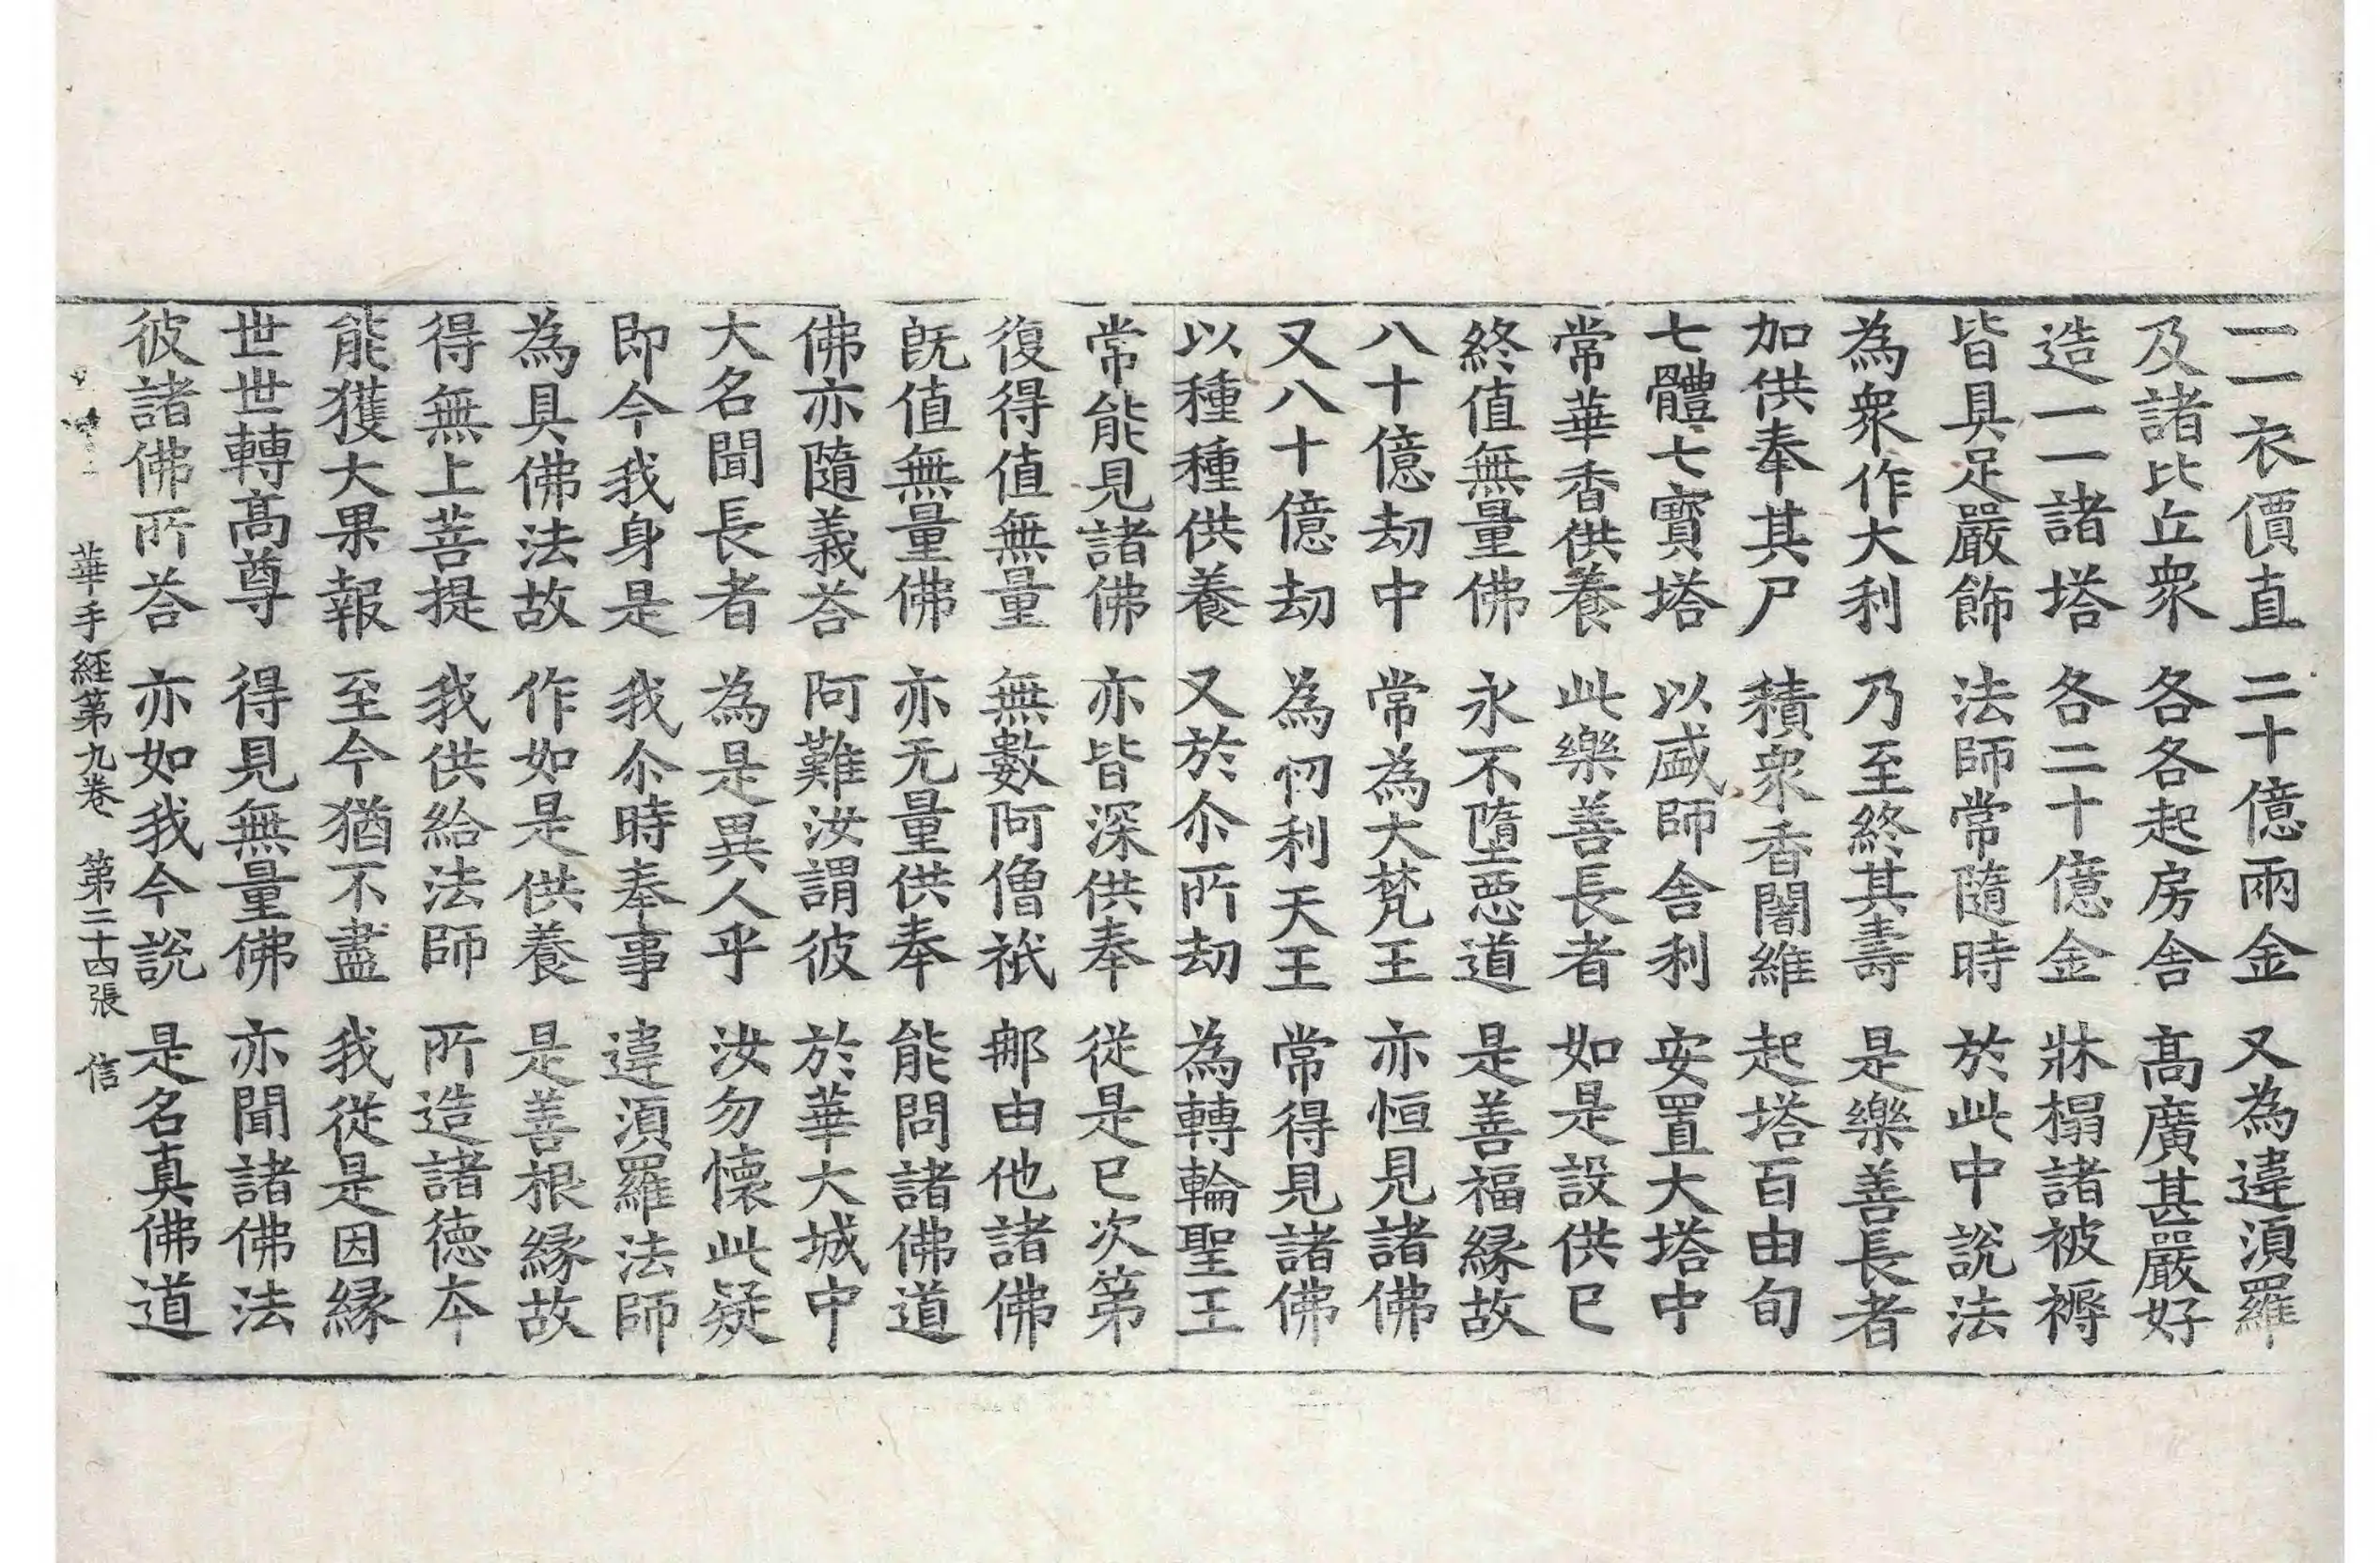 一一衣價直 二十億兩金 又為違湏羅
及諸比丘衆 各各起房舎 髙廣甚嚴好
造一一諸塔 各二十億金 牀榻諸被褥
皆具足嚴飾 法師常隨時 於此中說法
為衆作大利 乃至終其壽 是樂善長者
加供奉其尸 積衆香闍維 起塔百由旬
七體七寶塔 以盛師舎利 安置大塔中
常華香供養 此樂善長者 如是設供已
終值無量佛 永不墮惡道 是善福縁故
八十億劫中 常為大梵王 亦恒見諸佛
又八十億劫 為忉利天王 常得見諸佛
以種種供養 又於尒所劫 為轉輪聖王
常能見諸佛 亦皆深供奉 從是已次第
復得值無量 無數阿僧祇 那由他諸佛
旣值無量佛 亦无量供奉 能問諸佛道
佛亦隨義荅 阿難汝謂彼 於華大城中
大名聞長者 為是異人乎 汝勿懷此疑
即今我身是 我尒時奉事 違湏羅法師
為具佛法故 作如是供養 是善根縁故
得無上菩提 我供給法師 所造諸徳本
能獲大果報 至今猶不盡 我從是因縁
世世轉髙尊 得見無量佛 亦聞諸佛法
彼諸佛所荅 亦如我今說 是名真佛道
華手經第九卷 第二十四張 信